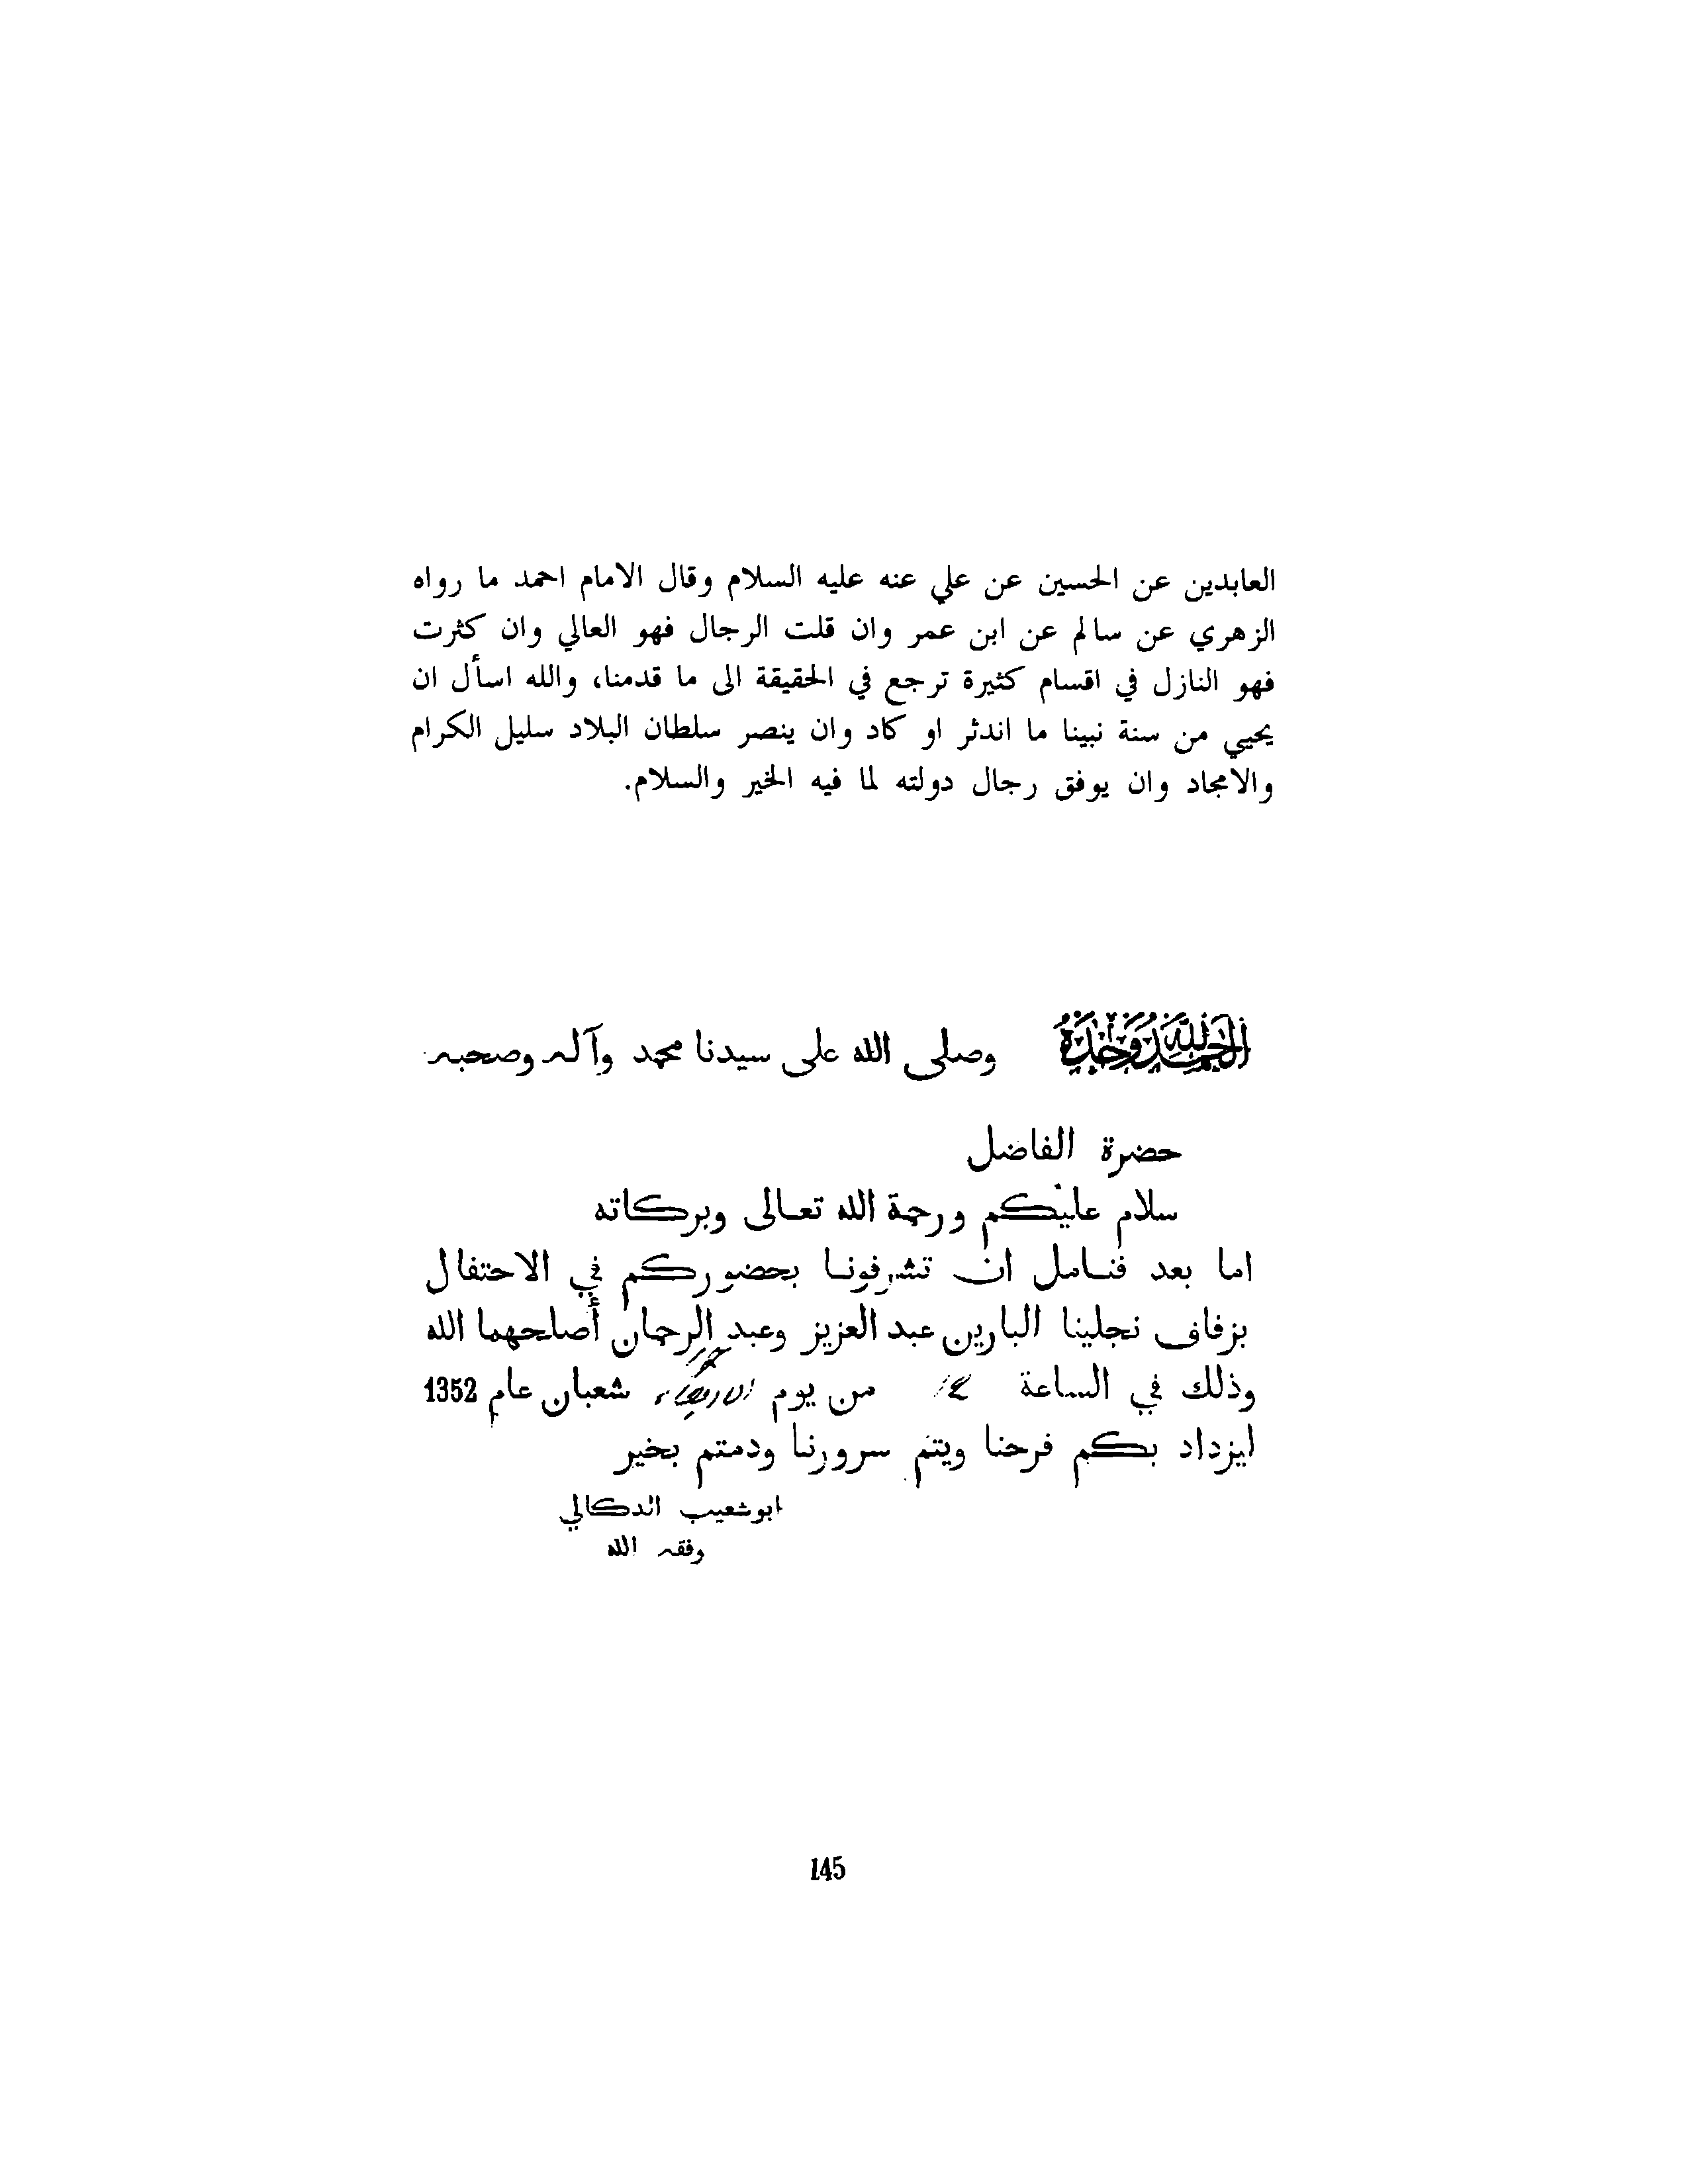 العابدين عن الحسين عن علي عنه عليه السلام وقال الامام احمد ما رواه
الزهري عن سالم عن ابن عمر وان قلت الرجال فهو العالي وان كثرت
فهو النازل في اقسام كثيرة ترجع في الحقيقة الى ما قدمنا، والله اسأل ان
يحيي من سنة نبينا ما اندثر او كاد وان ينصر سلطان البلاد سليل الكرام
والامجاد وان يوفق رجال دولته لما فيه الخير والسلام.
الحمد لله وحده وصلى الله على سيدنا محمد وآله وصحبه
حضرة الفاضل
سلام عليكم ورحمة الله تعالى وبركاته
اما بعد فنامل ان تشرفونا بحضوركم في الاحتفال
بزفاف نجلينا البارين عبد العزيز وعبد الرحمان أصلحهما الله
وذلك في الساعة من يوم الاربعاء شعبان عام 1352
ليزداد بكم فرحنا ويتم سرورنا ودمتم بخير
ابوشعيب الدكالي
وفقه الله
145